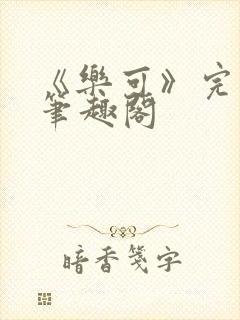 《樂可》完
筆趣閣
暗香箋字